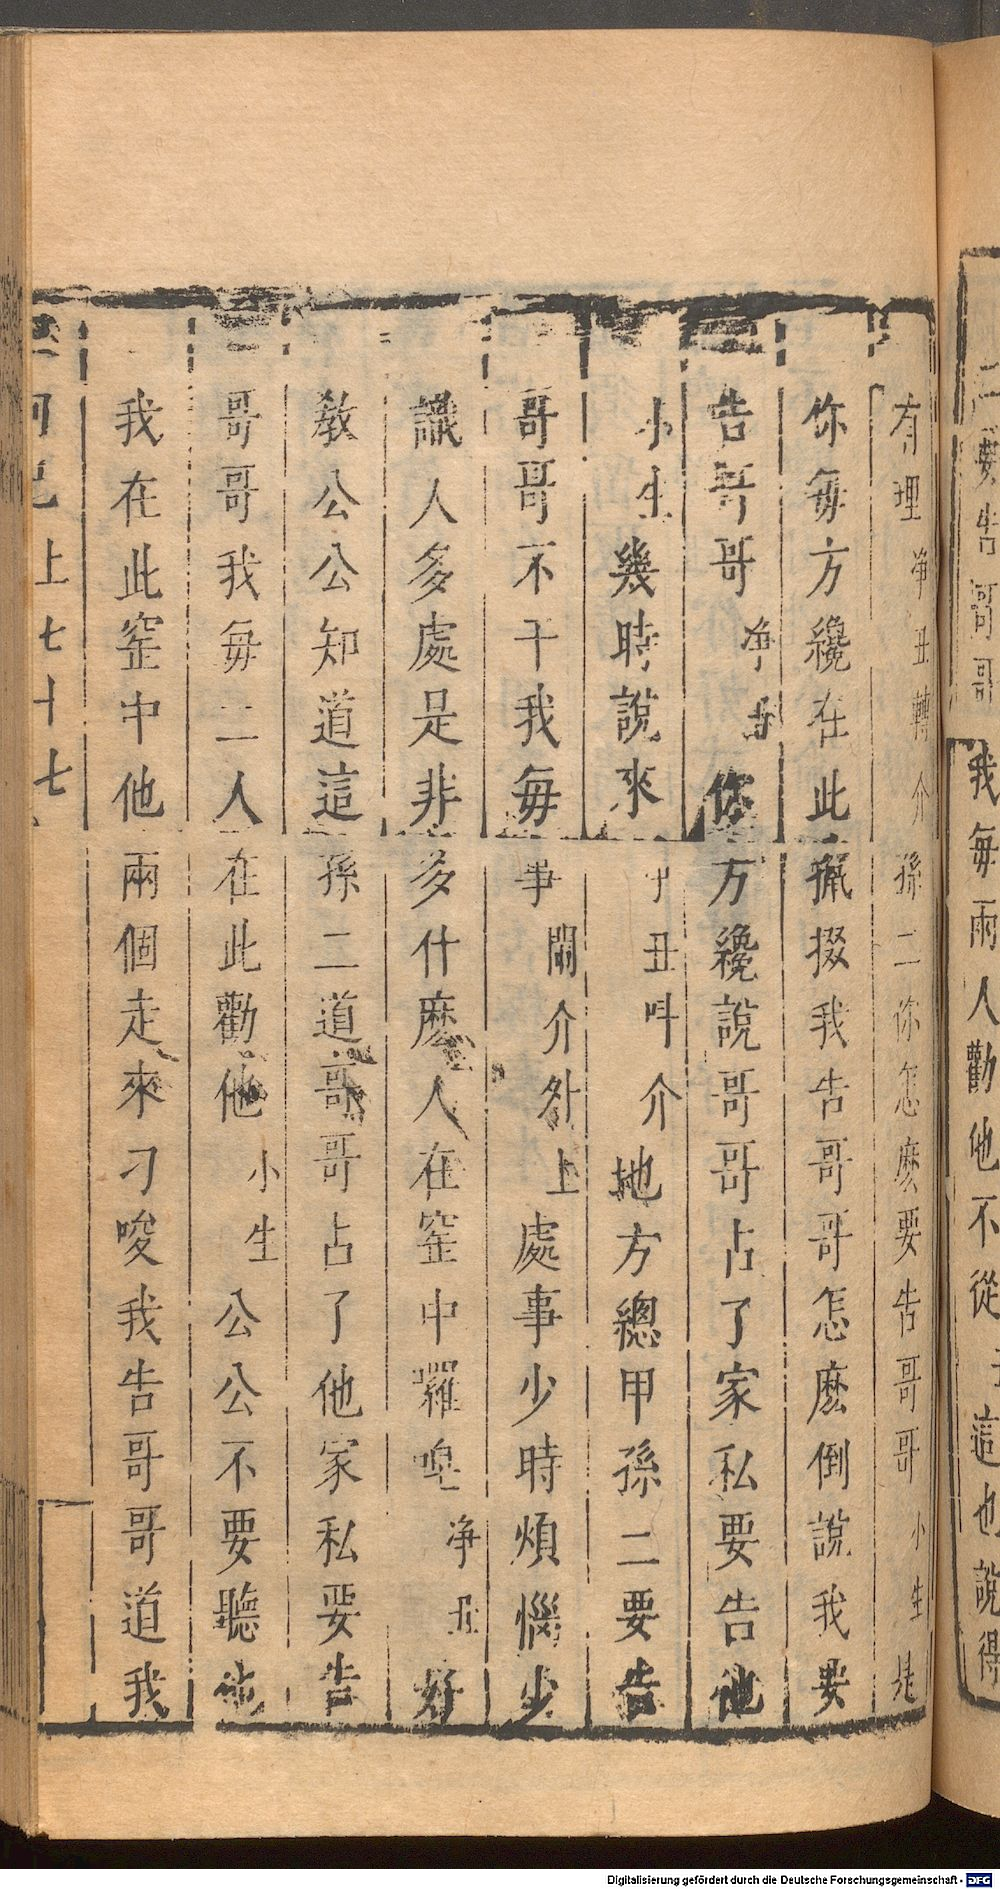 二要告哥哥我每兩人勸他不從 這也說得
有理淨丑轉介孫二你怎麽要告哥哥小生是
你每方纔在此攛掇我告哥哥怎麽倒說我要
告哥哥淨丑你方纔說哥哥占了家私要告他
小生幾時說來 丑叫介地方總甲孫二要告
哥哥不干我每事鬧介外上處事少時煩惱少
識人多處是非多什麽人在窰中囉唣淨丑好
教公公知道這孫二道哥哥占了他家私要告
哥哥我每二人在此勸他小生公公不要聽他
我在此窰中他兩個走來刁唆我告哥哥道我
上七十七
Digitalisierung gefördert durch die Deutsche Forschungsgemeinschaft - DFG